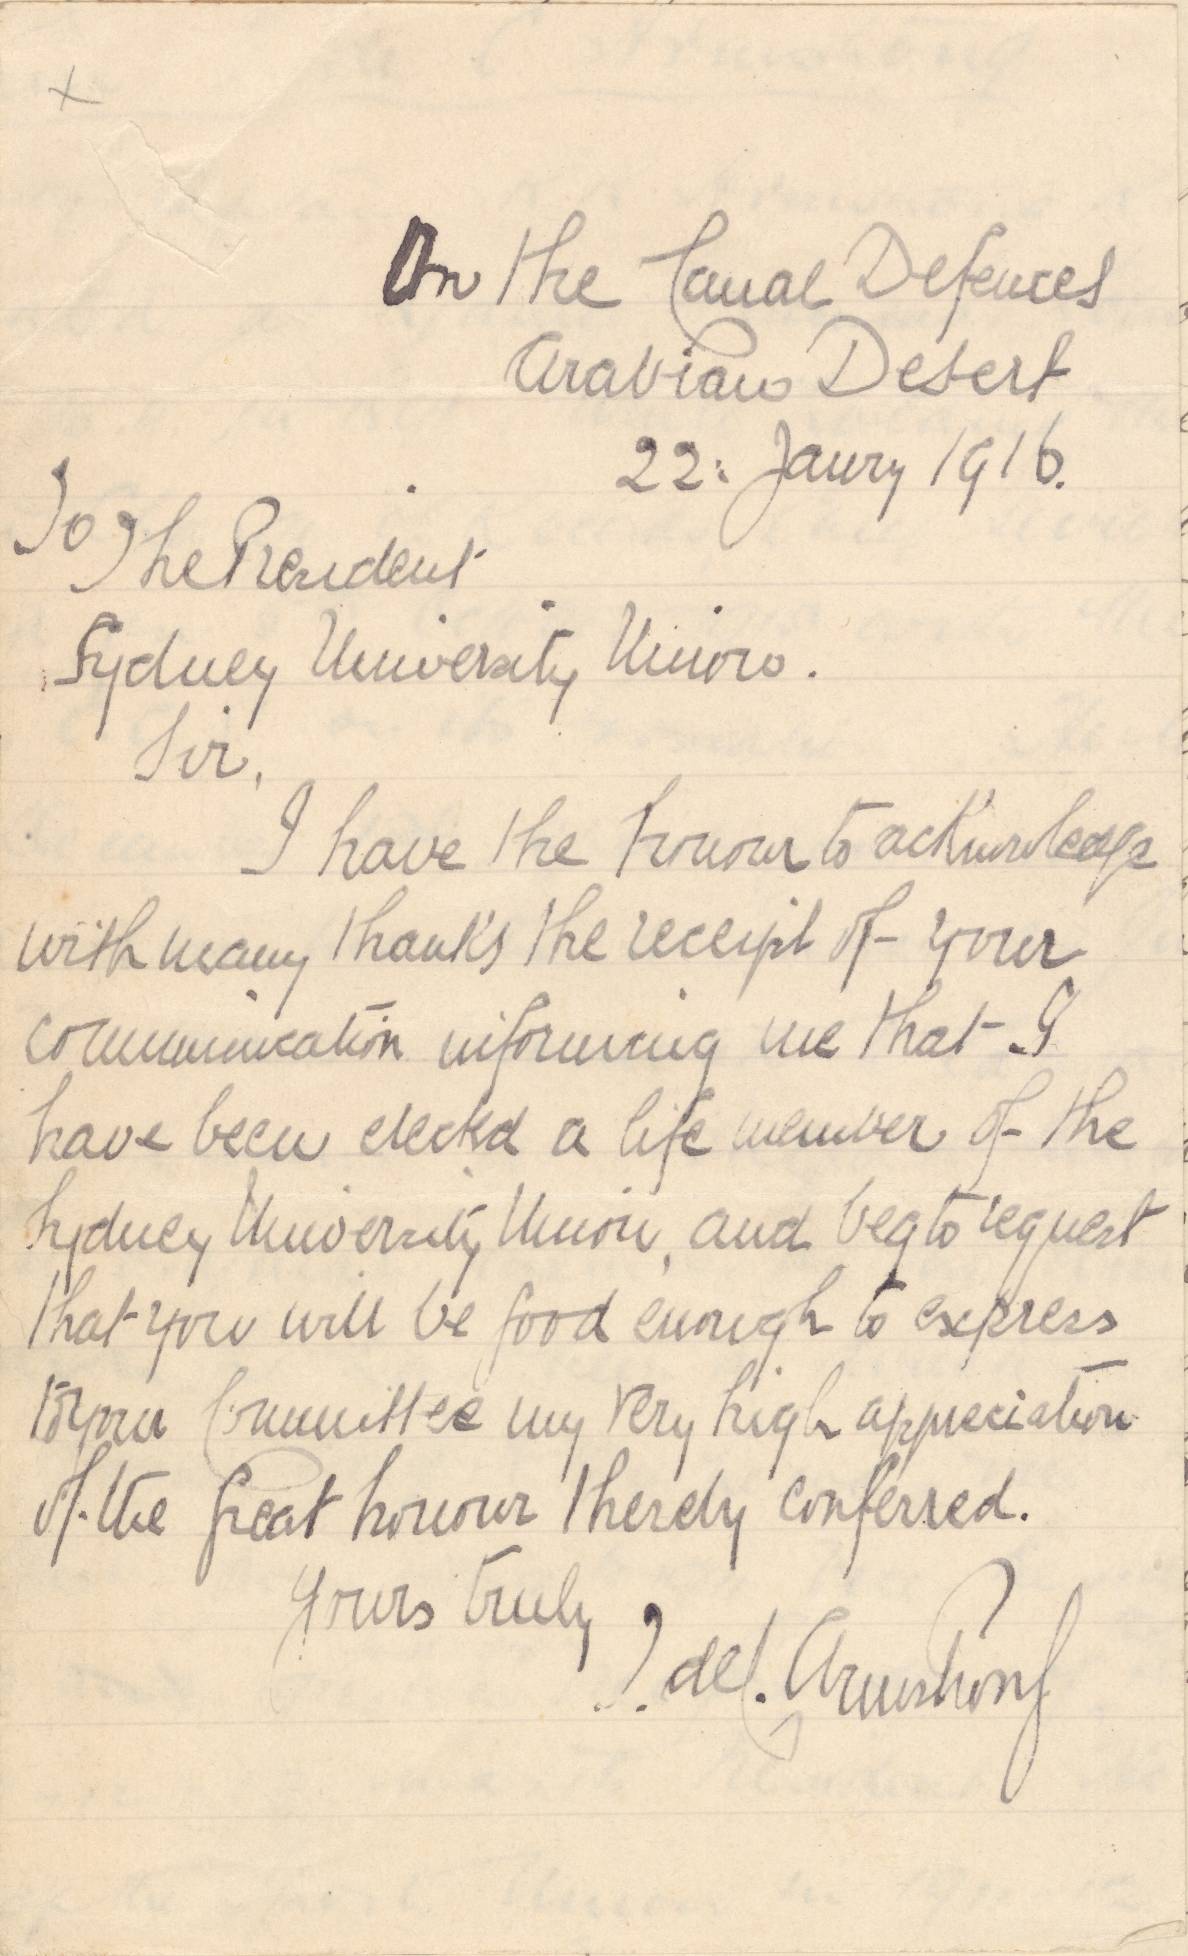 On the Canal Defences
Arabian Desert
22: Janry 1916.
To The President
Sydney University Union.
Sir,
I have the honour to acknowledge
with many thanks the receipt of your
communication informing me that I
have been elected a life member of the
Sydney University Union, and beg to request
that you will be good enough to express
to your Committee my very high appreciation
of the great honour thereby conferred.
Yours truly
deL. Armstrong